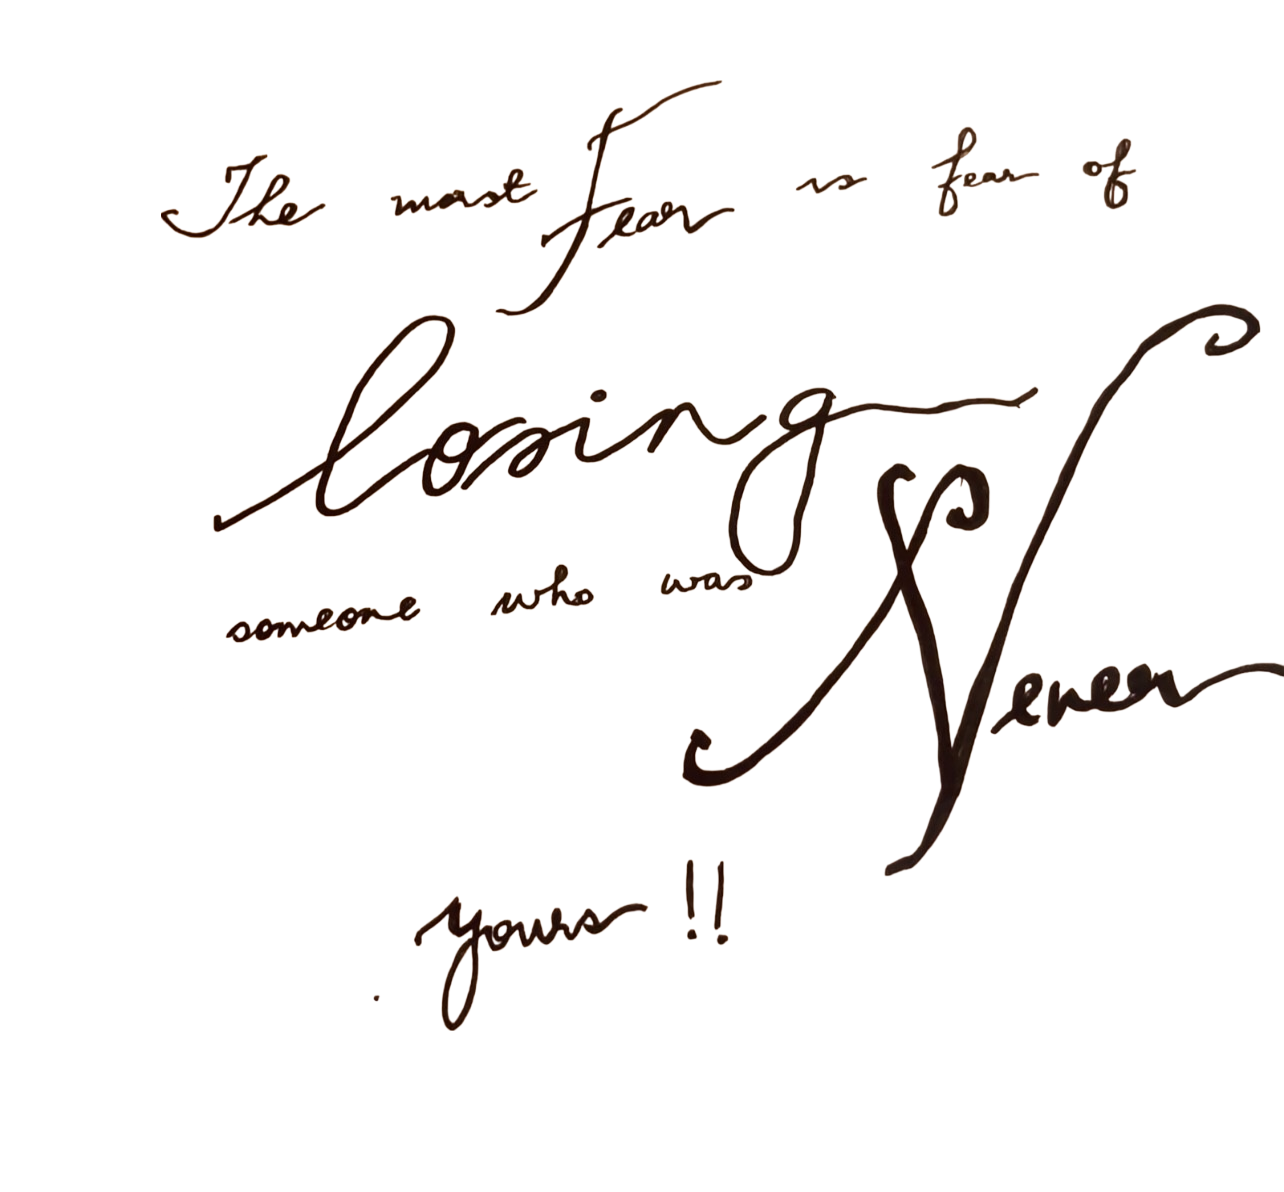 The most Fear is fear of
losing
someone who was
Never
yours !!